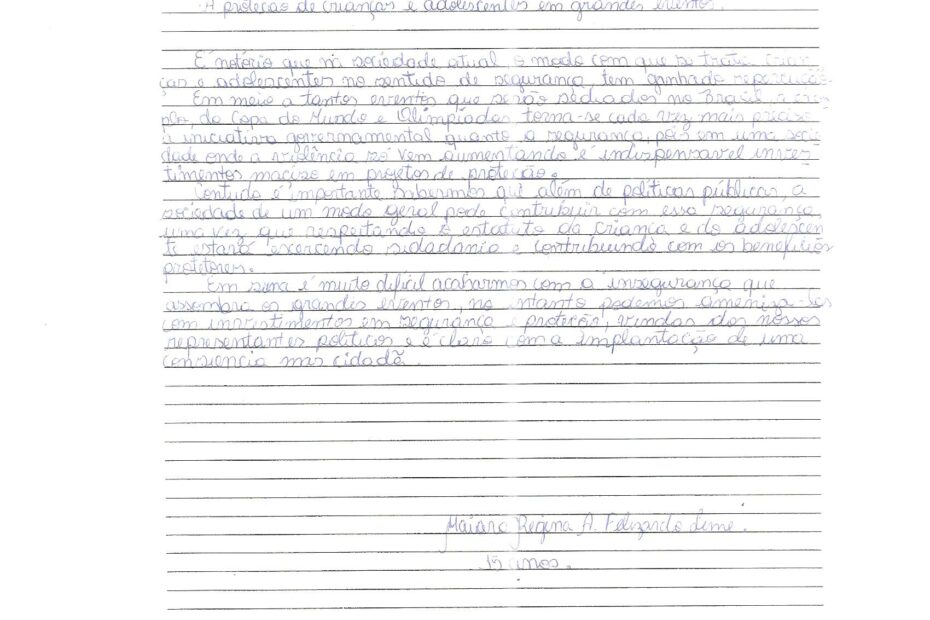 A proteção de crianças e adolescentes em grandes eventos.
É notório que na sociedade atual o modo com que se trata crian
ças e adolescentes no sentido de segurança, tem ganhado repercusão.
Em meio a tantos eventos que serão sediados no Brasil, a exem
plo, da Copa do Mundo e Olimpíadas torna-se cada vez mais preciso
a iniciativa governamental quanto a segurança, pois em uma socie
dade onde a violência só vem aumentando é indispensavel inves
timentos macizo em projetos de proteção.
Contudo é importante sabermos que além de políticas públicas, a
sociedade de um modo geral pode contribuir com essa segurança
uma vez que respeitando o estatuto da criança e do adolescen
te estará exercendo sidadania e contribuindo com os benefícios
protetores.
Em suma é muito difícil acabarmos com a insegurança que
assombra os grandes eventos, no entanto podemos ameniza-los
com investimentos em segurança e proteção, vindas dos nossos
representantes políticos e é claro com a implantação de uma
consiencia mas cidadã.
Maiara Regina A. Felizardo Leme.
15 anos.